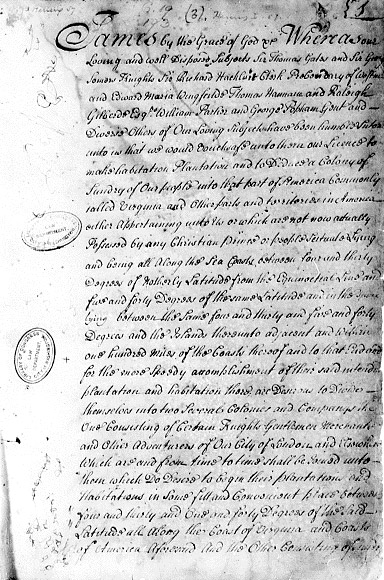 (3)
James by the Grace of God &c Whereas our
Loving and well Disposed Subjects Sir Thomas Gates and Sir George
Somers Knights Sir Richard Hackluit Clerk Prebendary of Westm
and Edward Maria Wingfeilde Thomas Hannam and Raleigh
Gilberde Esqrs William Parker and George Popham Gent and
Diverse Others of Our Loving Subjects have been humble
unto us that we would Vouchsafe unto them our Licence to
make habitation Plantation and to Deduce a Colony of
Sundry of Our people into that part of America Commonly
called Virginia and Other parts and territories in America
either Appertaining unto Us or which are not now actually
Possessed by any Christian Prince or people Scituate Lying
and being all Along the Sea Coasts between four and thirty
Degrees of Northerly Latitude from the Equinoctial Line and
five and forty Degrees of the same Latitude and in the
lying between the Same four and thirty and five and forty
Degrees and the Islands thereunto adjacent and Within
one hundred Miles of the Coasts thereof and to that End and
for the more speedy accomplishment of their said intended
plantation and habitation there are Desirous to Divide
themselves into two Several Colonies and Companys the
One Consisting of Certain Knights Gentlemen Merchants
and Other Adventurers of Our City of London and Elsewhere
Which are and from time to time shall be Joined unto
them which do Desire to begin their plantations and
habitations in Some fitt and Convenient place between
four and thirty and One and forty Degrees of the said
Latitude all Along the Coast of Virginia and Coasts
of America Aforesaid And the Other Consisting of